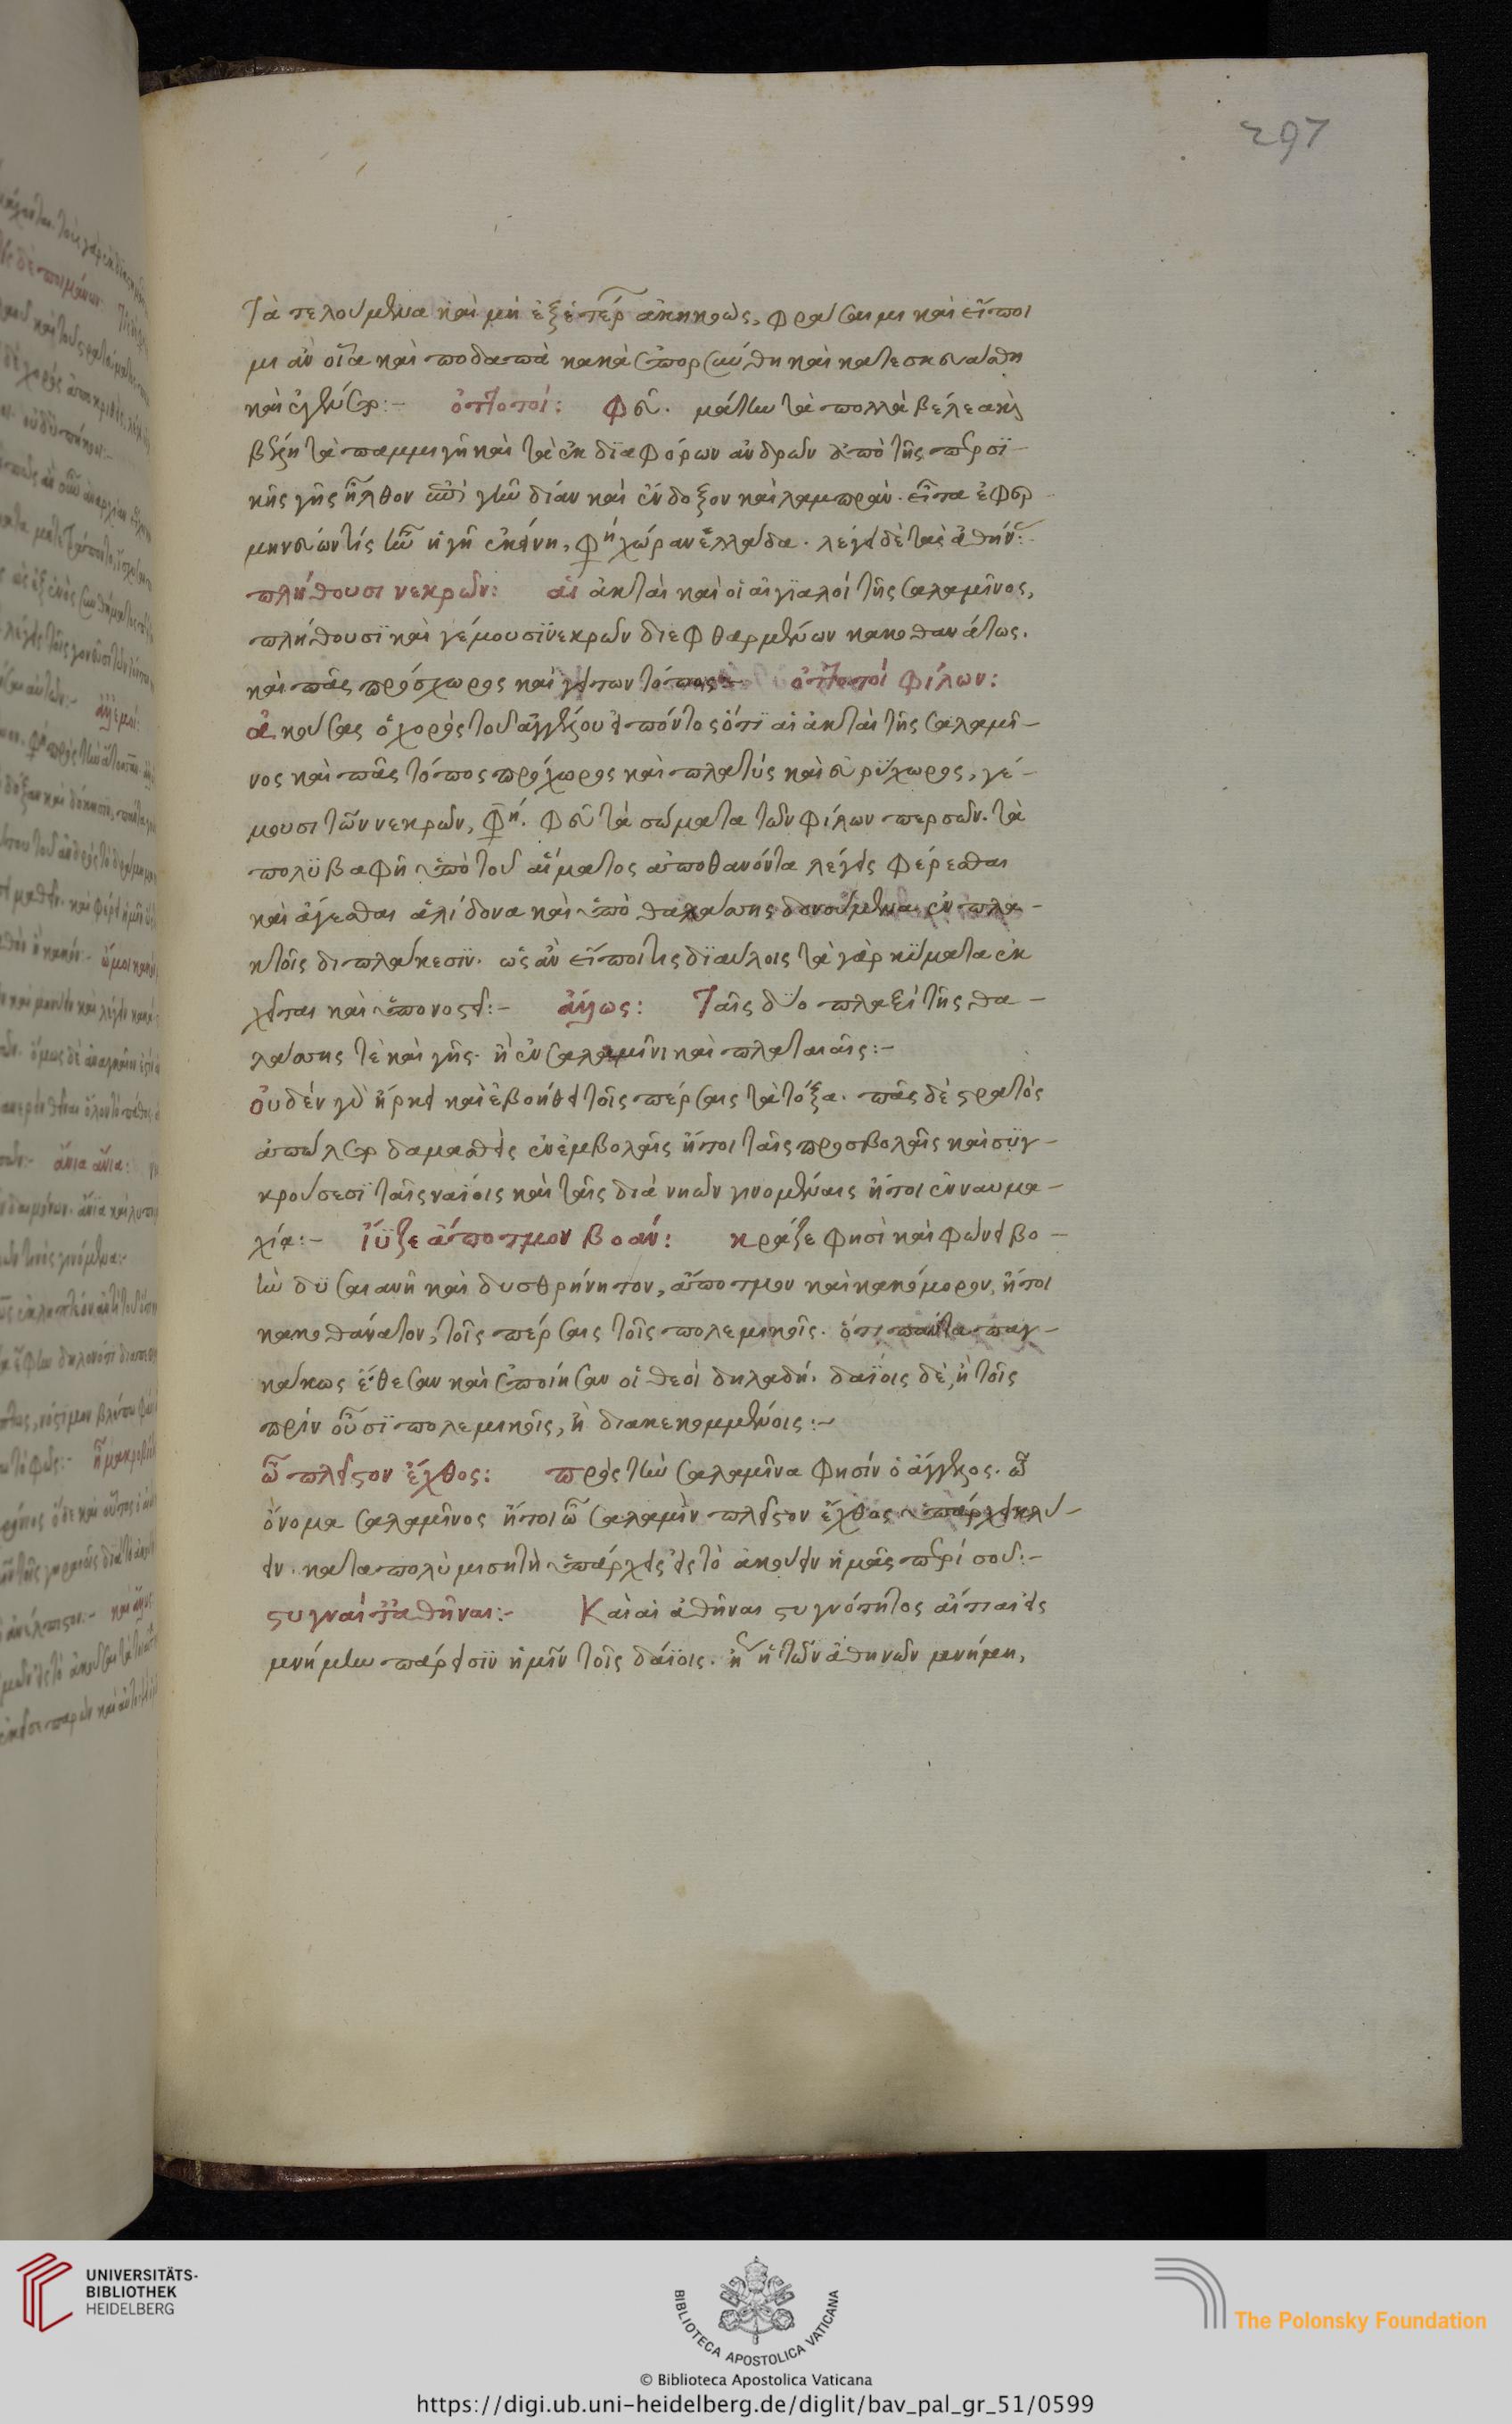 297
τὰ τελούμενα καὶ μὴ ἐξ ἑτέρ ἀκηκοὼς, φράσαιμι καὶ εἴποι
μι ἂν οἷα καὶ ποδαπὰ κακὰ ἐπορσύνθη καὶ κατεσκευάσθη
καὶ ἐγένετο:– ὀττοτοί: φεῦ. μάτην τὰ πολλὰ βέλεα καὶ
βέλη τὰ παμμιγῆ καὶ τὰ ἐκ διαφόρων ἀνδρῶν ἀπὸ τῆς περσϊ–
κῆς γῆς ἦλθον ἐπὶ γῆν δίαν καὶ ἔνδοξον καὶ λαμπράν. εἶτα ἐφερ
μηνεύων τίς ἦν ἡ γῆ ἐκείνη, φη χώραν ἑλλάδα. λέγει δὲ τὰς ἀθήν
πλήθουσι νεκρῶν: αἱ ἀκταὶ καὶ οἱ αἰγϊαλοὶ τῆς σαλαμῖνος,
πλήθουσϊ καὶ γέμουσϊ νεκρῶν διεφθαρμένων κακοθανάτως.
καὶ πᾶς πρόσχωρος καὶ γείτων τόπος:– ὀττοτοί φίλων:
ἀκούσας ὁ χορὸς τοῦ ἀγγέλου εἰπόντος ὅτϊ αἱ ἀκταὶ τῆς σαλαμῖ–
νος καὶ πᾶς τόπος πρόχωρος καὶ πλατὺς καὶ εὐρΰχωρος, γέ–
μουσι τῶν νεκρῶν, φη. φεῦ τὰ σώματα τῶν φίλων περσῶν. τὰ
πολϋβαφῆ ὑπὸ τοῦ αἵματος ἀποθανόντα λέγεις φέρεσθαι
καὶ ἄγεσθαι ἁλίδονα καὶ ὑπὸ θαλάσσης δονούμενα ἐν πλα–
κτοῖς διπλάκεσϊν. ὡς ἂν εἴποι τις δϊαύλοις τὰ γὰρ κύματα ἐκ
χεῖται καὶ ὑπονοστεῖ:– ἄλλως: Ταῖς δύο πλαξὶ τῆς θα–
λάσσης τὲ καὶ γῆς. ἢ ἐν σαλαμῖνι καὶ πλαταιαῖς:–
οὐδὲν γὰρ ἤρκει καὶ ἐβοήθει τοῖς πέρσαις τὰ τόξα. πᾶς δὲ στρατὸς
ἀπώλετο δαμασθεὶς ἐν ἐμβολαῖς ἤτοι ταῖς προσβολαῖς καὶ συγ–
κρούσεσϊ ταῖς ναΐοις καὶ ταῖς διὰ νηῶν γινομέναις ἤτοι ἐν ναυμα–
χία:– ἴϋζε ἄποτμον βοάν: κράζε φησὶ καὶ φώνει βο–
ὴν δϋσαιανῆ καὶ δυσθρήνητον, ἄποτμον καὶ κακόμορον, ἤτοι
κακοθάνατον, τοῖς πέρσαις τοῖς πολεμικοῖς. ὅτι πάντα παγ–
κάκως ἔθεσαν καὶ ἐποίησαν οἱ θεοὶ δηλαδή. δαΐοις δὲ, ἢ τοῖς
πρὶν οὖσϊ πολεμικοῖς, ἢ διακεκομμένοις:–
ὦ πλεῖστον ἔχθος: πρὸς τὴν σαλαμῖνα φησὶν ὁ ἄγγελος. ὦ
ὄνομα σαλαμῖνος ἤτοι ὦ σαλαμὶν πλεῖστον ἔχθος ὑπάρχει κλύ–
ειν. κατὰ πολὺ μισητὴ ὑπάρχεις εἰς τὸ ἀκούειν ἡμᾶς περὶ σοῦ:–
στυγναὶ τ' ἀθῆναι:– Καὶ αἱ ἀθῆναι στυγνότητος αἴτιαι εἰς
μνήμην πάρεισϊν ἡμῖν τοῖς δάϊοις. ἢ ἡ τῶν ἀθηνῶν μνήμη,
UNIVERSITÄTS-
BIBLIOTHEK
HEIDELBERG
BIBLIOTECA APOSTOLICA VATICANA
The Polonsky Foundation
© Biblioteca Apostolica Vaticana
https://digi.ub.uni-heidelberg.de/diglit/bav_pal_gr_51/0599